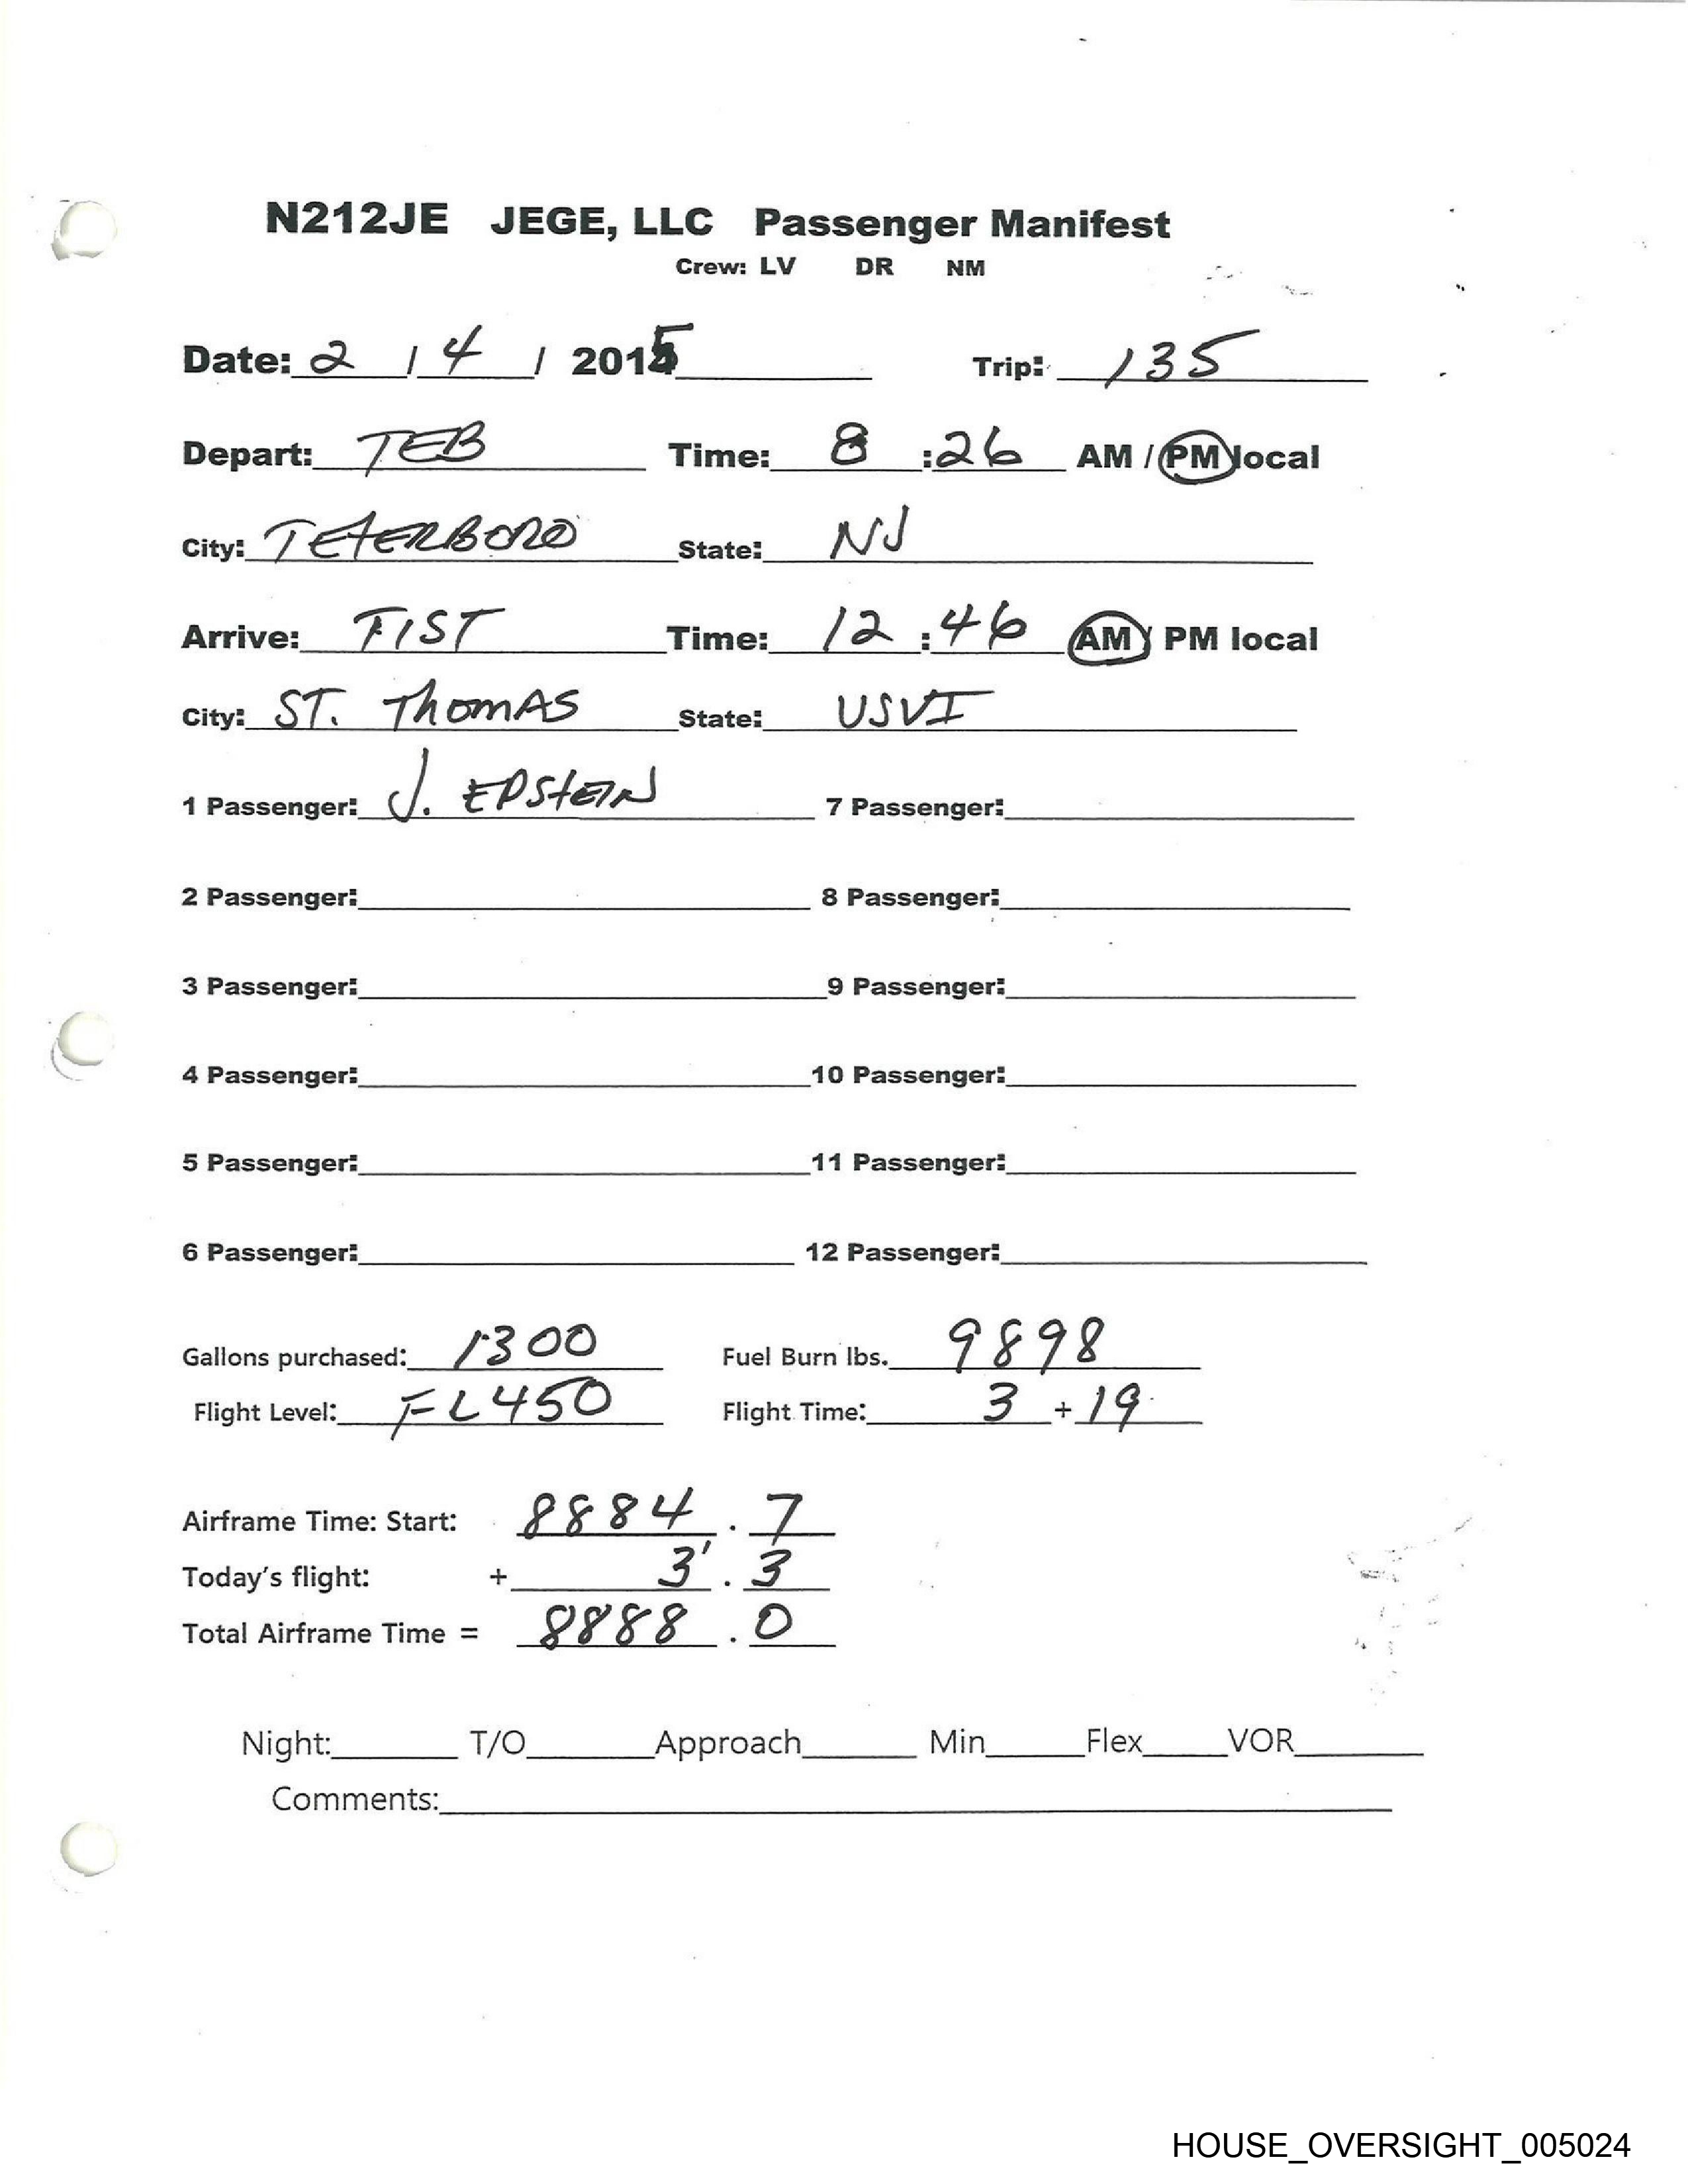 N212JE JEGE, LLC Passenger Manifest
Crew: LV DR NM
Date: 2 / 4 / 2015 Trip: 135
Depart: TEB Time: 8 :26 AM / PM local
City: TETERBORO State: NJ
Arrive: TIST Time: 12 :46 AM / PM local
City: ST. ThomAS State: USVI
1 Passenger: J. EPStEIN 7 Passenger:
2 Passenger: 8 Passenger:
3 Passenger: 9 Passenger:
4 Passenger: 10 Passenger:
5 Passenger: 11 Passenger:
6 Passenger: 12 Passenger:
Gallons purchased: 1300 Fuel Burn lbs. 9898
Flight Level: FL450 Flight Time: 3 + 19
Airframe Time: Start: 8884 . 7
Today's flight: + 3 . 3
Total Airframe Time = 8888 . 0
Night: T/O Approach Min Flex VOR
Comments:
HOUSE_OVERSIGHT_005024